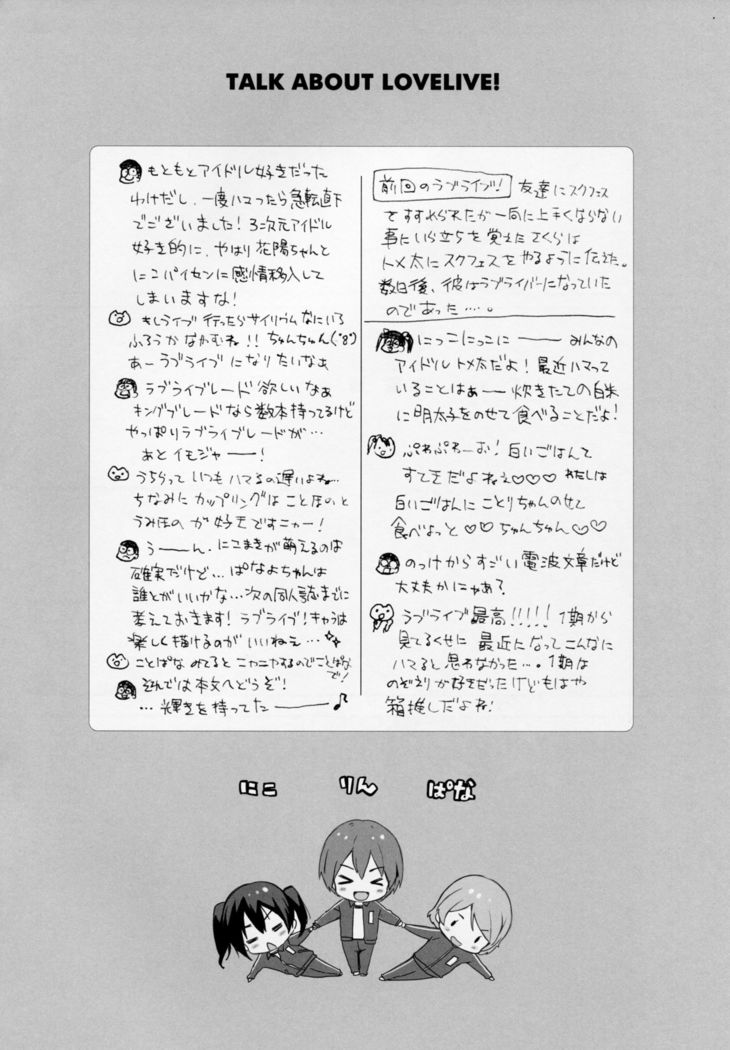 TALK ABOUT LOVELIVE!
前回のラブライブ! 友達にスクフェス
をすすめられたが一向に上手くならない
事にいら立ちを覚えたさくらは
トメ太にスクフェスをやるように伝えた。
数日後、彼はラブライバーになっていた
のであった…。
にっこにっこにーーー みんなの
アイドルトメ太だよ! 最近ハマって
いることはぁー 炊きたての白米
に明太子をのせて食べることだよ!
ぷわぷわーお! 白いごはんて
すてきだよねぇ♡♡♡ わたしは
白いごはんにことりちゃんのせて
食べよっと♡♡ちゅんちゅん♡♡
のっけからすごい電波文章だけど
大丈夫かにゃぁ?
ラブライブ最高!!!!! 1期から
見てるくせに 最近になってこんなに
ハマると思わなかった…。1期は
のぞえりが好きだったけどもはや
箱推しだよね!
もともとアイドル好きだった
わけだし、一度ハマったら急転直下
でございました! 3次元アイドル
好き的に、やはり花陽ちゃんと
にこパイセンに感情移入して
しまいますな!
もしライブ行ったらサイリウムなにいろ
ふろうかなかむね!! ちゅんちゅん(・8・)
あーラブライブになりたいなぁ
ラブライブレード欲しいなぁ
キングブレードなら数本持ってるけど
やっぱりラブライブレードが…
あとイモジャー!
うちらっていつもハマるの遅いよね…
ちなみにカップリングはことほのと
うみほのが好きですニャー!
うーーん、にこまきが萌えるのは
確実だけど…ぱなよちゃんは
誰とがいいかな…次の同人誌までに
考えておきます! ラブライブ!キャラは
楽しく描けるのがいいねぇ…
ことぱなみてるとニヤニヤするのでことぱな
で!
それでは本文へどうぞ!
…輝きを持ってたーーー♪
にこ りん ぱな